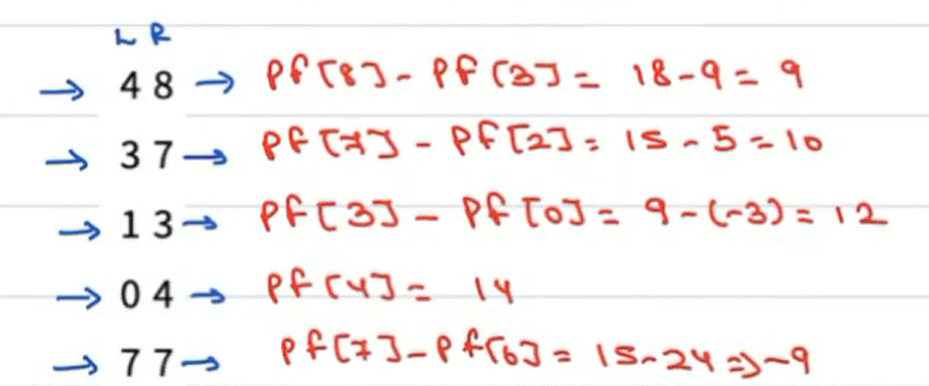 L R
→ 4 8 → Pf[8] - Pf[3] = 18-9 = 9
→ 3 7 → Pf[7] - Pf[2] = 15 - 5 = 10
→ 1 3 → Pf[3] - Pf[0] = 9 - (-3) = 12
→ 0 4 → Pf[4] = 14
→ 7 7 → Pf[7] - Pf[6] = 15-24 => -9